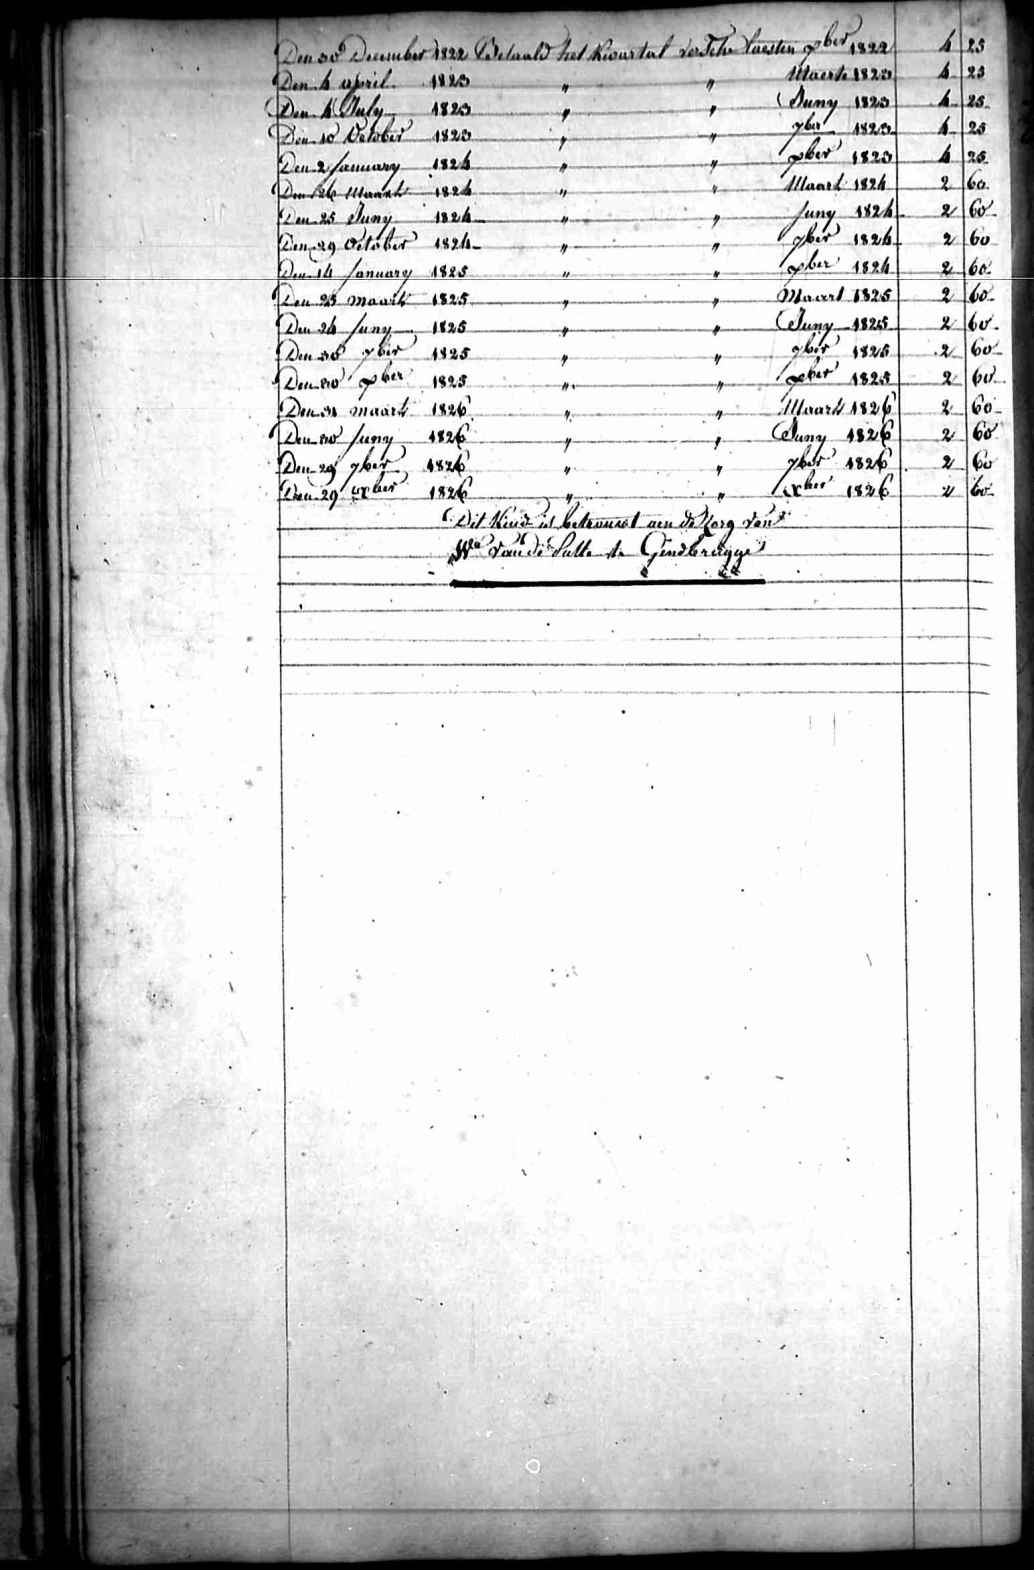 Den 30 December 1822 Betaald het kwartal versche laesten xber 1822 4 25
Den 4 april 1823 " " Maerte 1823 4 25
Den 4 July 1823 " " Juny 1823 4 25
Den 10 October 1823 " " 7ber 1823 4 25
Den 2 January 1824 " " xber 1823 4 25
Den 26 Maart 1824 " " Maart 1824 2 60
Den 25 Juny 1824 " " Juny 1824 2 60
Den 29 October 1824 " " 7ber 1824 2 60
Den 14 January 1825 " " xber 1824 2 60
Den 25 maart 1825 " " Maart 1825 2 60
Den 24 Juny 1825 " " Juny 1825 2 60
Den 30 7ber 1825 " " 7ber 1825 2 60
Den 30 xber 1825 " " xber 1825 2 60
Den 31 maart 1826 " " Maart 1826 2 60
Den 30 Juny 1826 " " Juny 1826 2 60
Den 29 7ber 1826 " " 7ber 1826 2 60
Den 29 xber 1826 " " xber 1826 2 60
Dit Kind is betrouwt aen de Zorg van
We van de Putte te Gendbrugge